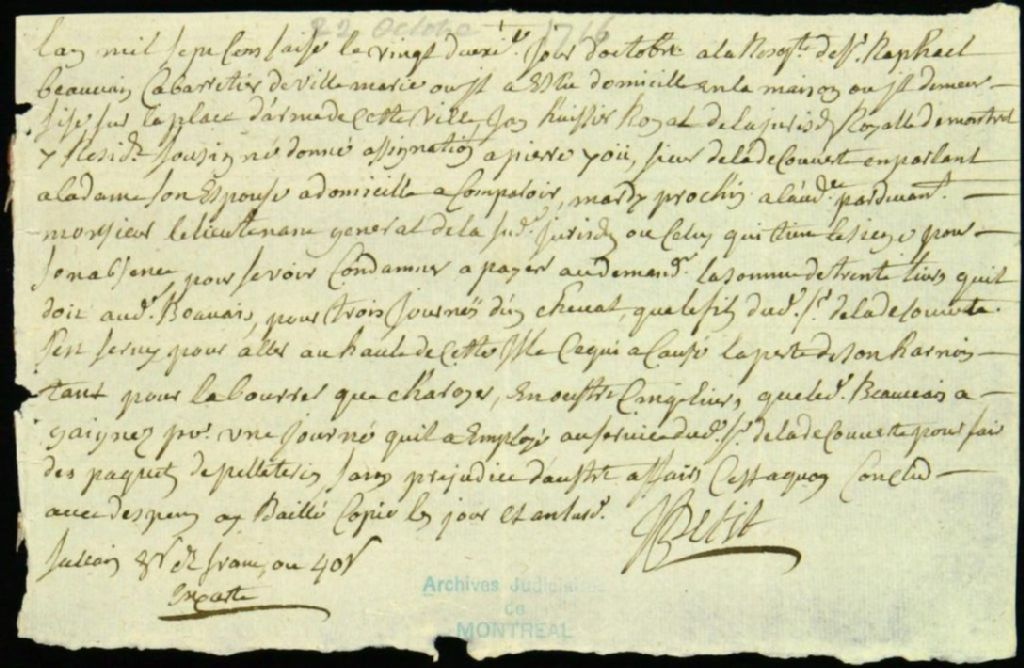 22 Octobre 1716
Lan mil sept Cens saise le vingt deuxie. Jour doctobre a la Reqte. de sr. Raphael
beauvais Cabarretier de ville marie ou Jl a Eslu domicille en la maison ou Jl demeur
sise sur la place d'arme de Cette ville, Huissier Royal de la jurisdon. Royalle de montreal
y Residt. soussigné donné assignation a pierre you, sieur de la de Couverte en parlant
a la dame son Espouse a domicille a Comparoir, mardy prochin a laude. pardevant
monsieur le lieutenant general de la sude. Jurisdon ou Celuy qui tien le siege pour
son absence, pour se voir Condamner a payer au demandr. la somme de trente livres quil
doit audt. Beauvais, pour trois Journés dun Cheval, que le fils dudt. sr. de la decouverte
sest servy pour aller au hault de Cette Isle Ce qui a Causé la perte de son harnois
tant pour la bourrer que en oustre Cinq livres, que ledt. Beauvais a
gaignez pr. une Journé quil a Employé au service dudt. sr. de la de Couverte pour fair
des paquets de pelleterie sans prejudice d'austre affairs Cest a quoy Conclud
avec despens ay Baillé Copie les jour Et an susd.
JPetit
ou 40s
Archives Judiciaires
de
MONTREAL